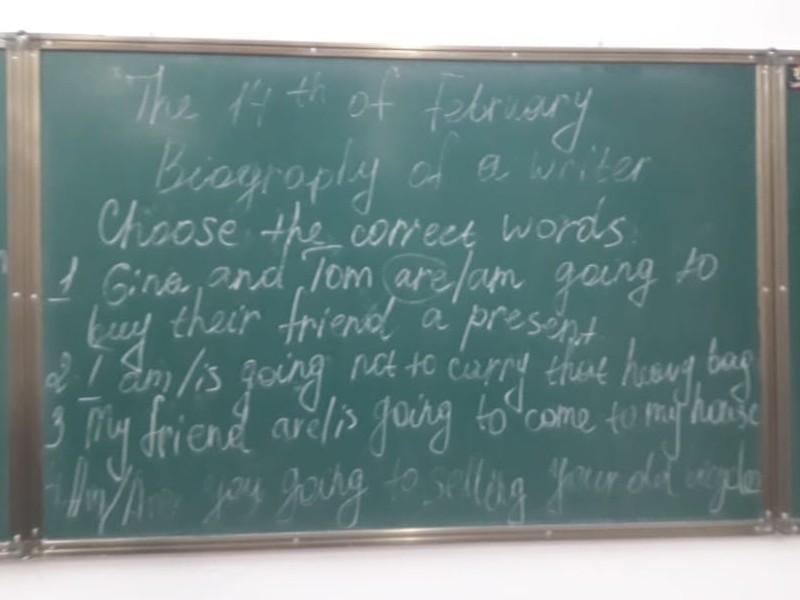 The 14th of February
Biography of a writer
Choose the correct words
1 Gina and Tom are/am going to
buy their friend a present
2 I am/is going not to carry that heavy bag
3 My friend are/is going to come to my house
Am/Are you going to selling your old bicycle